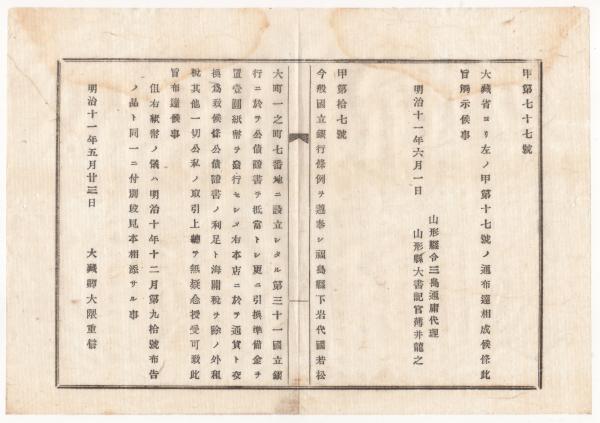 甲第七十七號
大藏省ヨリ左ノ甲第十七號ノ通布達相成候條此
旨觸示候事
明治十一年六月一日
山形縣令三島通庸代理
山形縣大書記官薄井龍之
甲第拾七號
今般國立銀行條例ヲ遵奉シ福島縣下岩代國若松
大町一之町七番地ニ設立シタル第三十一國立銀
行ニ於テ公債證書ヲ抵當トシ更ニ引換準備金ヲ
置壹圓紙幣ヲ發行セシメ右本店ニ於テ通貨ト交
換爲致候條公債證書ノ利足ト海關稅ヲ除ノ外租
稅其他一切公私ノ取引上總テ無疑念授受可致此
旨布達候事
但右紙幣ノ儀ハ明治十年十二月第九拾號布告
ノ品ト同一ニ付別段見本相添サル事
明治十一年五月廿三日
大藏卿大隈重信